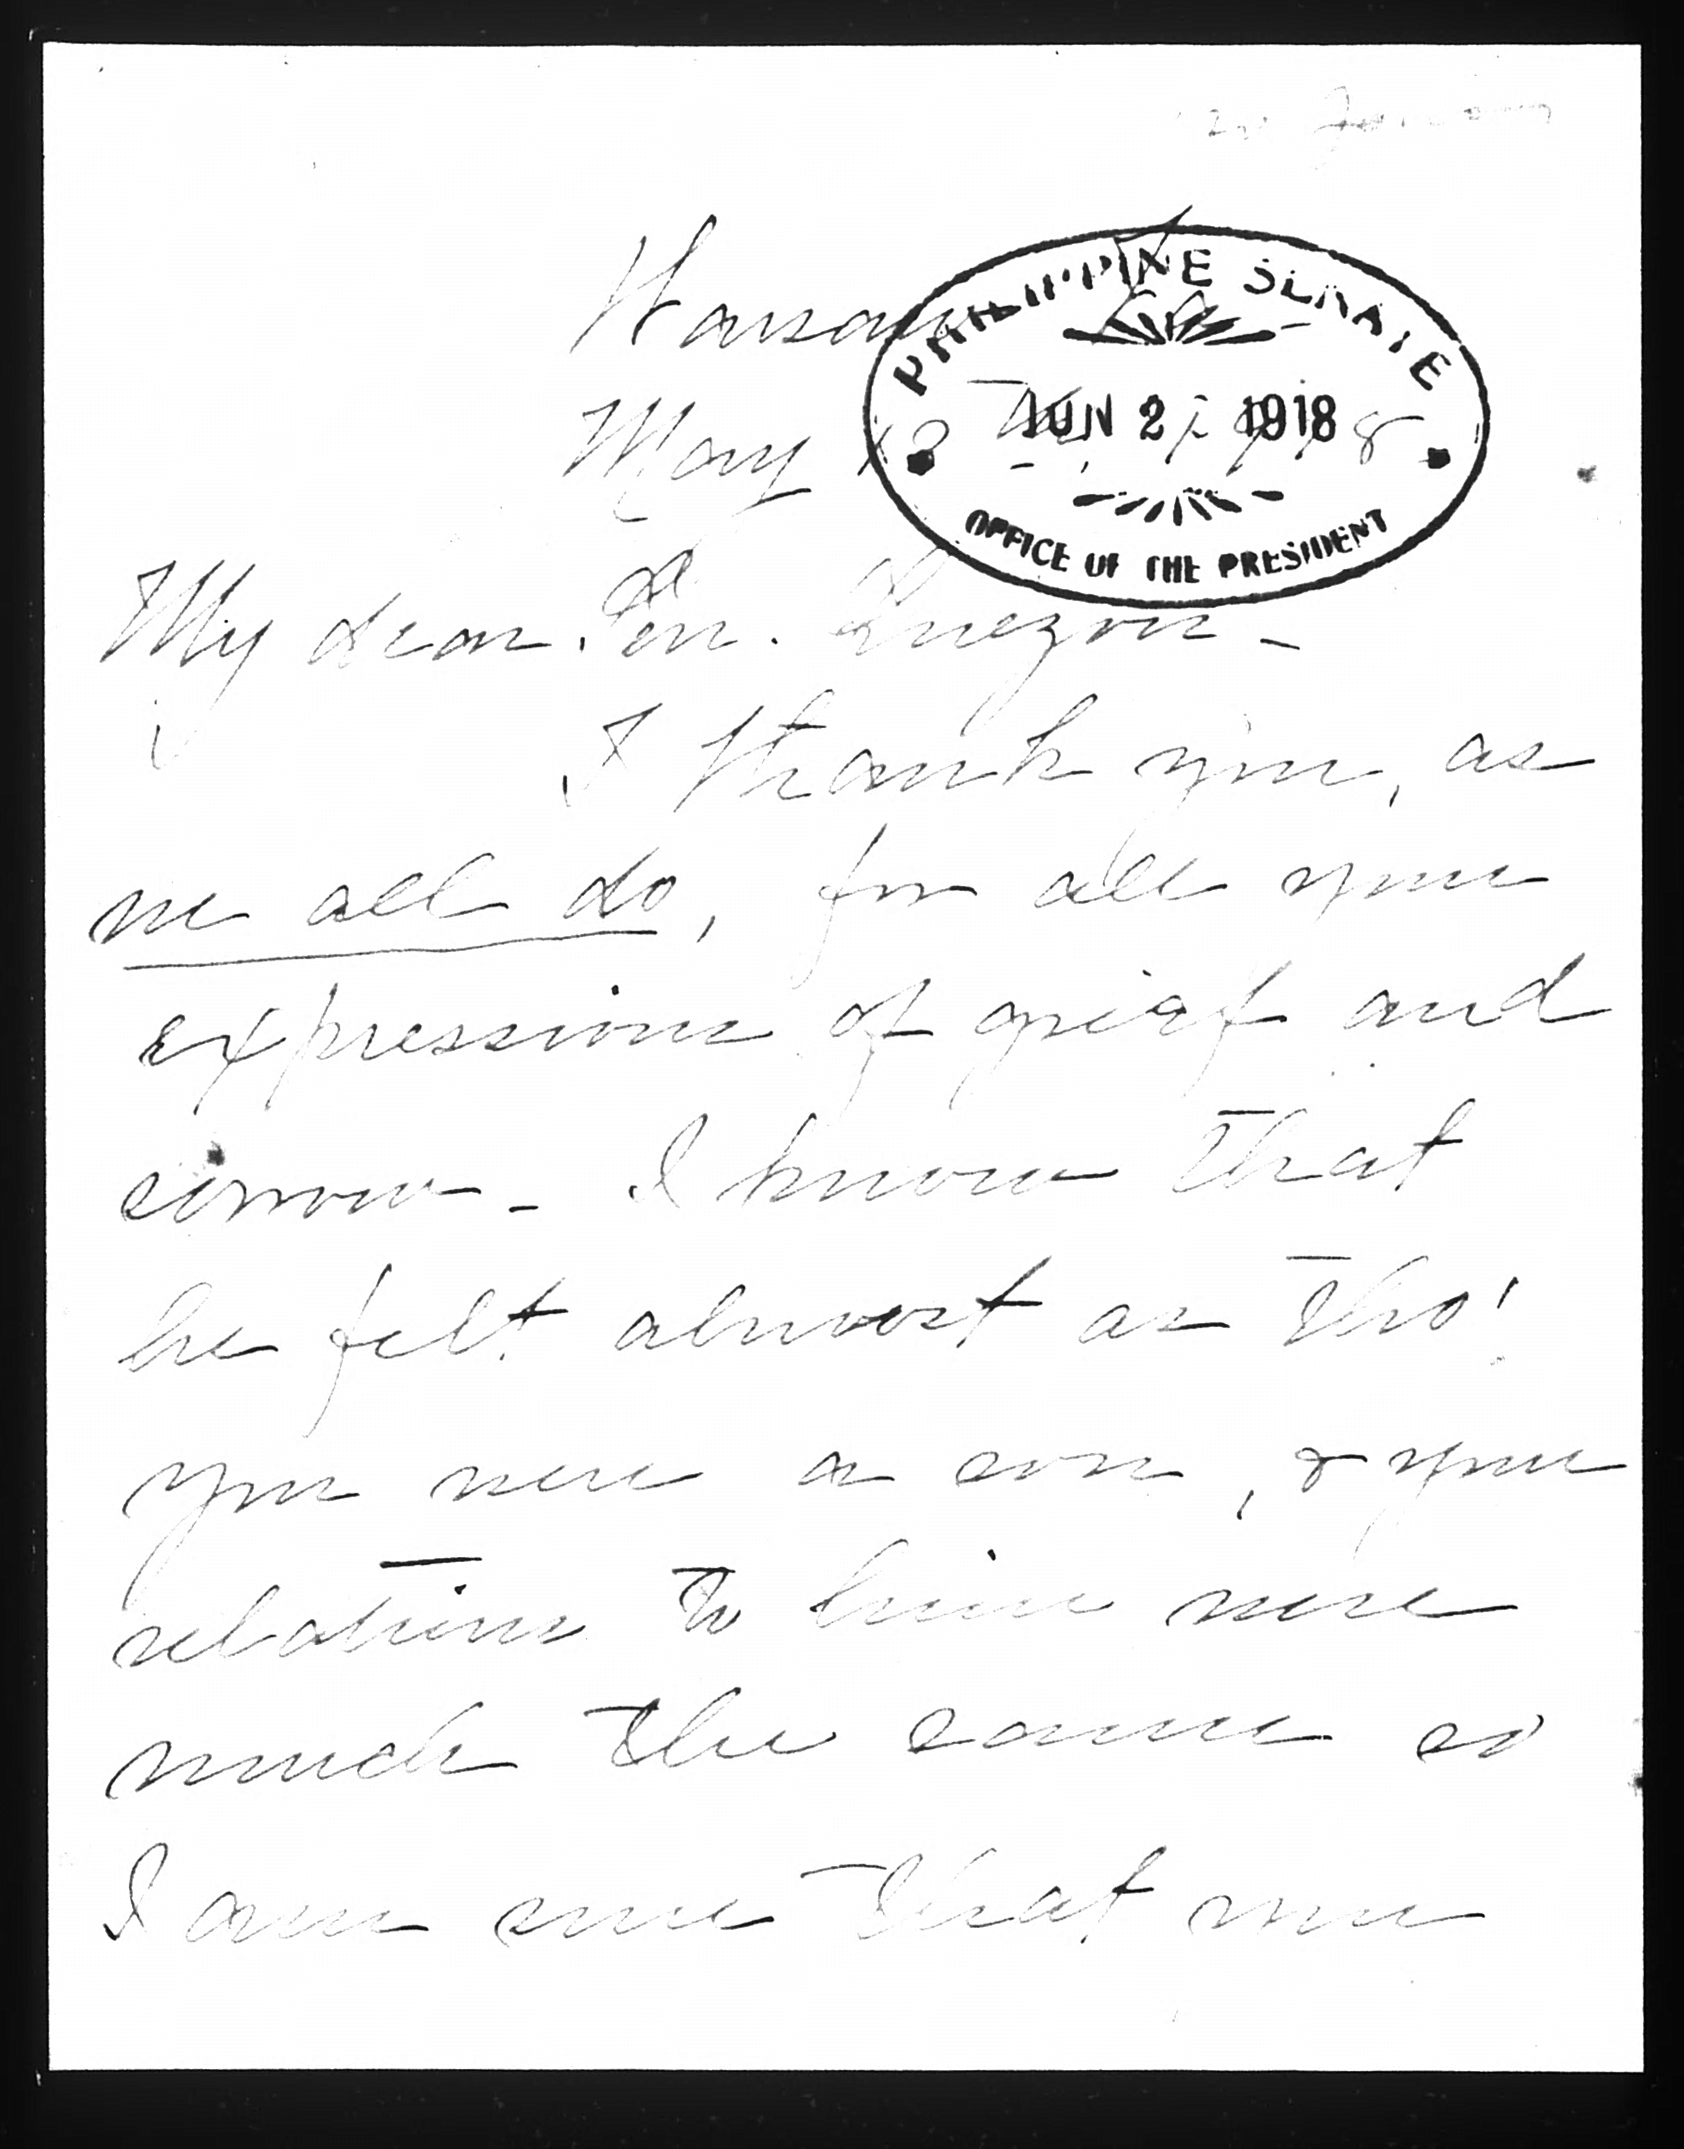 Warsaw
PHILIPPINE SENATE
May 13 Th. 1918
JUN 2 1918
OFFICE OF THE PRESIDENT
My dear Sen. Quezon -
I thank you, as
we all do, for all your
expressions of grief and
sorrow - I know that
he felt almost as tho'
you were a son, & your
relations to him were
much the same so
I am sure that our